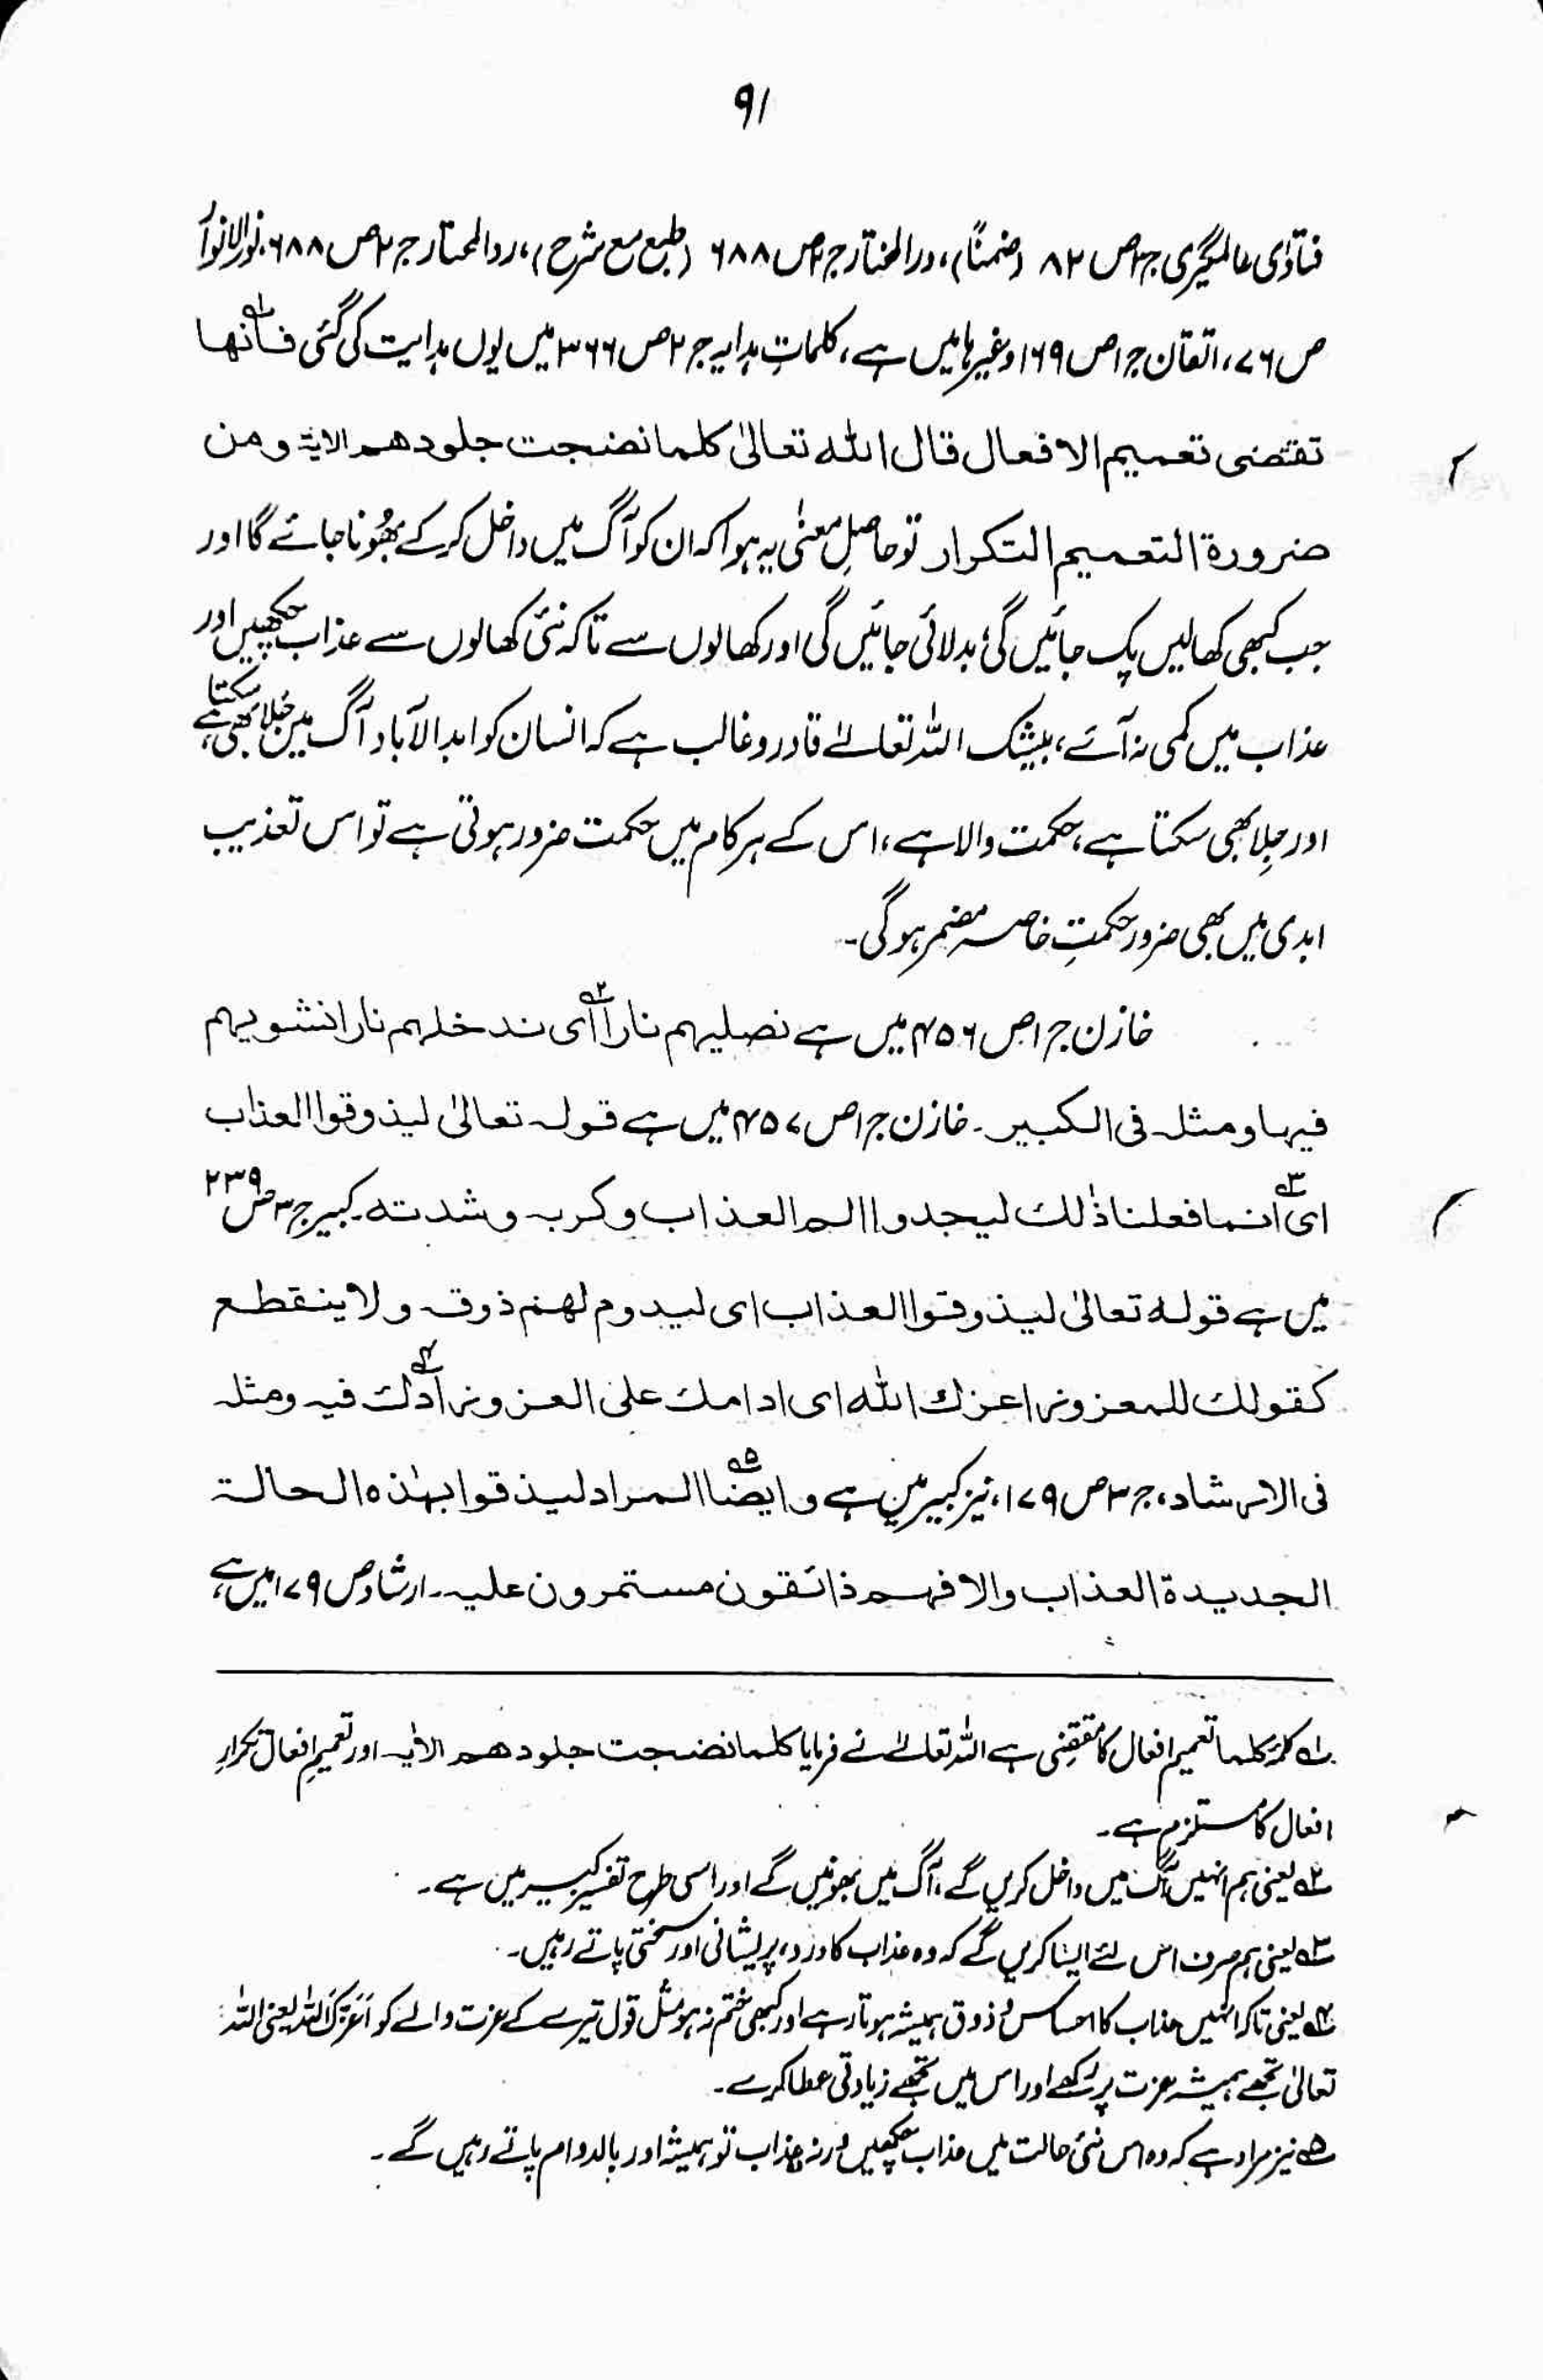 ۹۱
فتاوٰی عالمگیری ج۲ ص ۸۲ (ضمنًا)، درالمختار ج۲ ص ۶۸۸ (طبع مع شرح)، ردالمحتار ج۲ ص ۶۸۸، نورالانوار
ص ۷۶، اتقان ج۱ ص ۱۶۹ وغیرہا میں ہے، کلماتِ ہدایہ ج۲ ص ۳۶۶ میں یوں ہدایت کی گئی فانہا۱؎
تقتضی تعمیم الافعال قال اللہ تعالیٰ کلما نضجت جلودھم الایۃ ومن
ضرورۃ التعمیم التکرار تو حاصلِ معنٰی یہ ہوا کہ ان کو آگ میں داخل کرکے بھُونا جائے گا اور
جب کبھی کھالیں پک جائیں گی بدلائی جائیں گی اور کھالوں سے تاکہ نئی کھالوں سے عذاب چکھیں اور
عذاب میں کمی نہ آئے، بیشک اللہ تعالےٰ قادر و غالب ہے کہ انسان کو ابدالآباد آگ میں جَلا بھی سکتا ہے
اور جِلا بھی سکتا ہے، حکمت والا ہے، اس کے ہر کام میں حکمت ضرور ہوتی ہے تو اس تعذیب
ابدی میں بھی ضرور حکمتِ خاصہ مضمر ہوگی۔
خازن ج۱ ص ۴۵۶ میں ہے نصلیہم نارا۲؎ ای ندخلہم نارا نشویہم
فیہا ومثلہ فی الکبیر۔ خازن ج۱ ص ۴۵۷ میں ہے قولہ تعالیٰ لیذوقوا العذاب
ای۳؎ انما فعلنا ذٰلک لیجدوا الم العذاب وکربہ وشدتہ۔ کبیر ج۳ ص ۲۳۹
میں ہے قولہ تعالیٰ لیذوقوا العذاب ای لیدوم لھم ذوقہ ولا ینقطع
کقولک للمعزوز اعزک اللہ ای ادامک علی العز وزادک۴؎ فیہ ومثلہ
فی الارشاد، ج۳ ص ۱۷۹، نیز کبیر میں ہے وایضًا۵؎ المراد لیذقوا بہٰذہ الحالۃ
الجدیدۃ العذاب والا فہم ذائقون مستمرون علیہ۔ ارشاد ص ۱۷۹ میں ہے،
۱؎ کلمہ کلما تعمیمِ افعال کا مقتضِی ہے اللہ تعالےٰ نے فرمایا کلما نضجت جلودھم الایٰہ اور تعمیمِ افعال تکرارِ
افعال کا مستلزم ہے۔
۲؎ یعنی ہم انہیں آگ میں داخل کریں گے، آگ میں بھونیں گے اور اسی طرح تفسیر کبیر میں ہے۔
۳؎ یعنی ہم صرف اس لئے ایسا کریں گے کہ وہ عذاب کا درد، پریشانی اور سختی پاتے رہیں۔
۴؎ یعنی تاکہ انہیں عذاب کا احساس و ذوق ہمیشہ ہوتا رہے اور کبھی ختم نہ ہو مثل قول تیرے کے عزت والے کو اَعَزَّکَ اللہُ یعنی اللہ
تعالیٰ تجھے ہمیشہ عزت پر رکھے اور اس میں تجھے زیادتی عطا کرے۔
۵؎ نیز مراد ہے کہ وہ اس نئی حالت میں عذاب چکھیں ورنہ عذاب تو ہمیشہ اور بالدوام پاتے رہیں گے۔